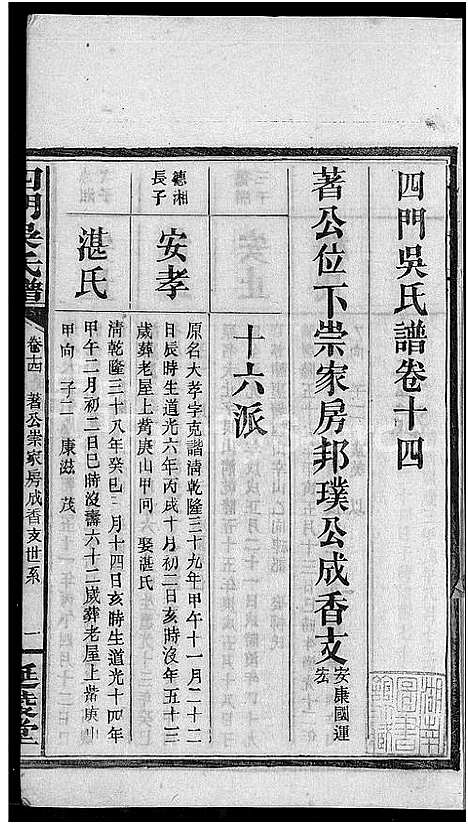 四門吳氏譜卷十四
著公位下崇家房邦璞公成香支 安康國運宏
十六派
德湘長子
安孝
原名大孝字克諧清乾隆三十九年甲午十一月二十二
日辰時生道光六年丙戌十月初二日亥時沒年五十三
歲葬老屋上觜庚山甲向 娶湛氏
湛氏
清乾隆三十八年癸巳 月十四日亥時生道光十四年
甲午二月初二日巳時沒壽六十二歲葬老屋上觜庚山
甲向 子二 康滋 茂
四門吳氏譜
卷十四 著公崇家房成香支世系
一